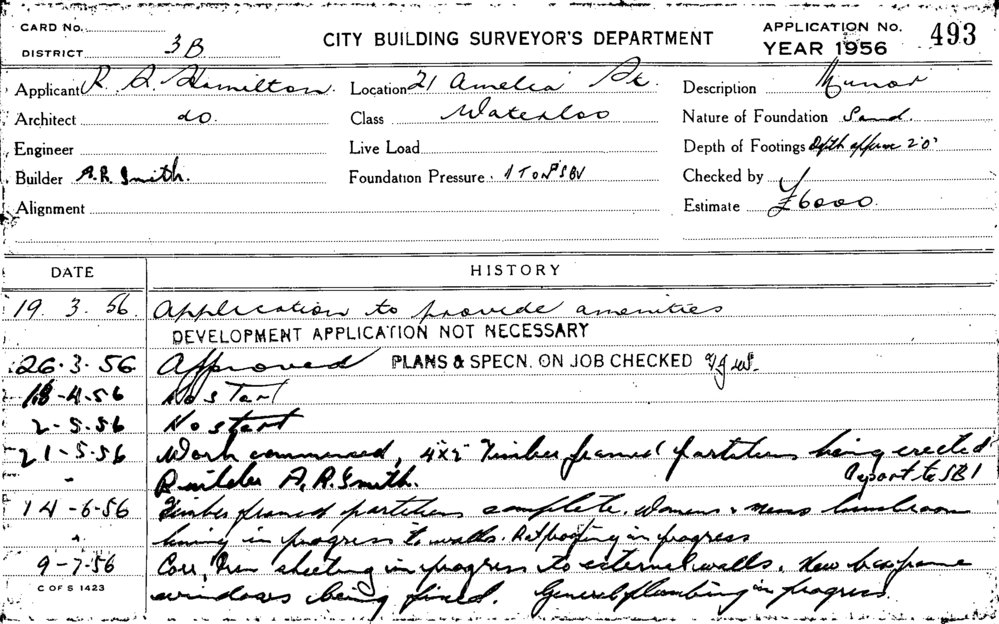 CARD No.
DISTRICT 3B
CITY BUILDING SURVEYOR'S DEPARTMENT
APPLICATION No. 493
YEAR 1956
Applicant R. A. Hamilton. Location 21 Amelia St. Description Minor
Architect do. Class Waterloo Nature of Foundation Sand.
Engineer Live Load Depth of Footings Depth approx 2'0"
Builder A.R. Smith. Foundation Pressure 1 Ton SBV Checked by
Alignment Estimate £6000.
DATE HISTORY
19. 3. 56. Application to provide amenities
DEVELOPMENT APPLICATION NOT NECESSARY
26-3-56 Approved PLANS & SPECN. ON JOB CHECKED
18-4-56 No start
2-5-56 No start
21-5-56 Work commenced, 4x2 Timber framed partitions being erected
Builder A.R. Smith. Report to SBI
14-6-56 Timber framed partitions complete. Womens & mens lunchroom
lining in progress to walls. Ratproofing in progress
9-7-56 Corr, Iron sheeting in progress to external walls. New box frame
C OF S 1423
windows being fixed. General plumbing in progress.